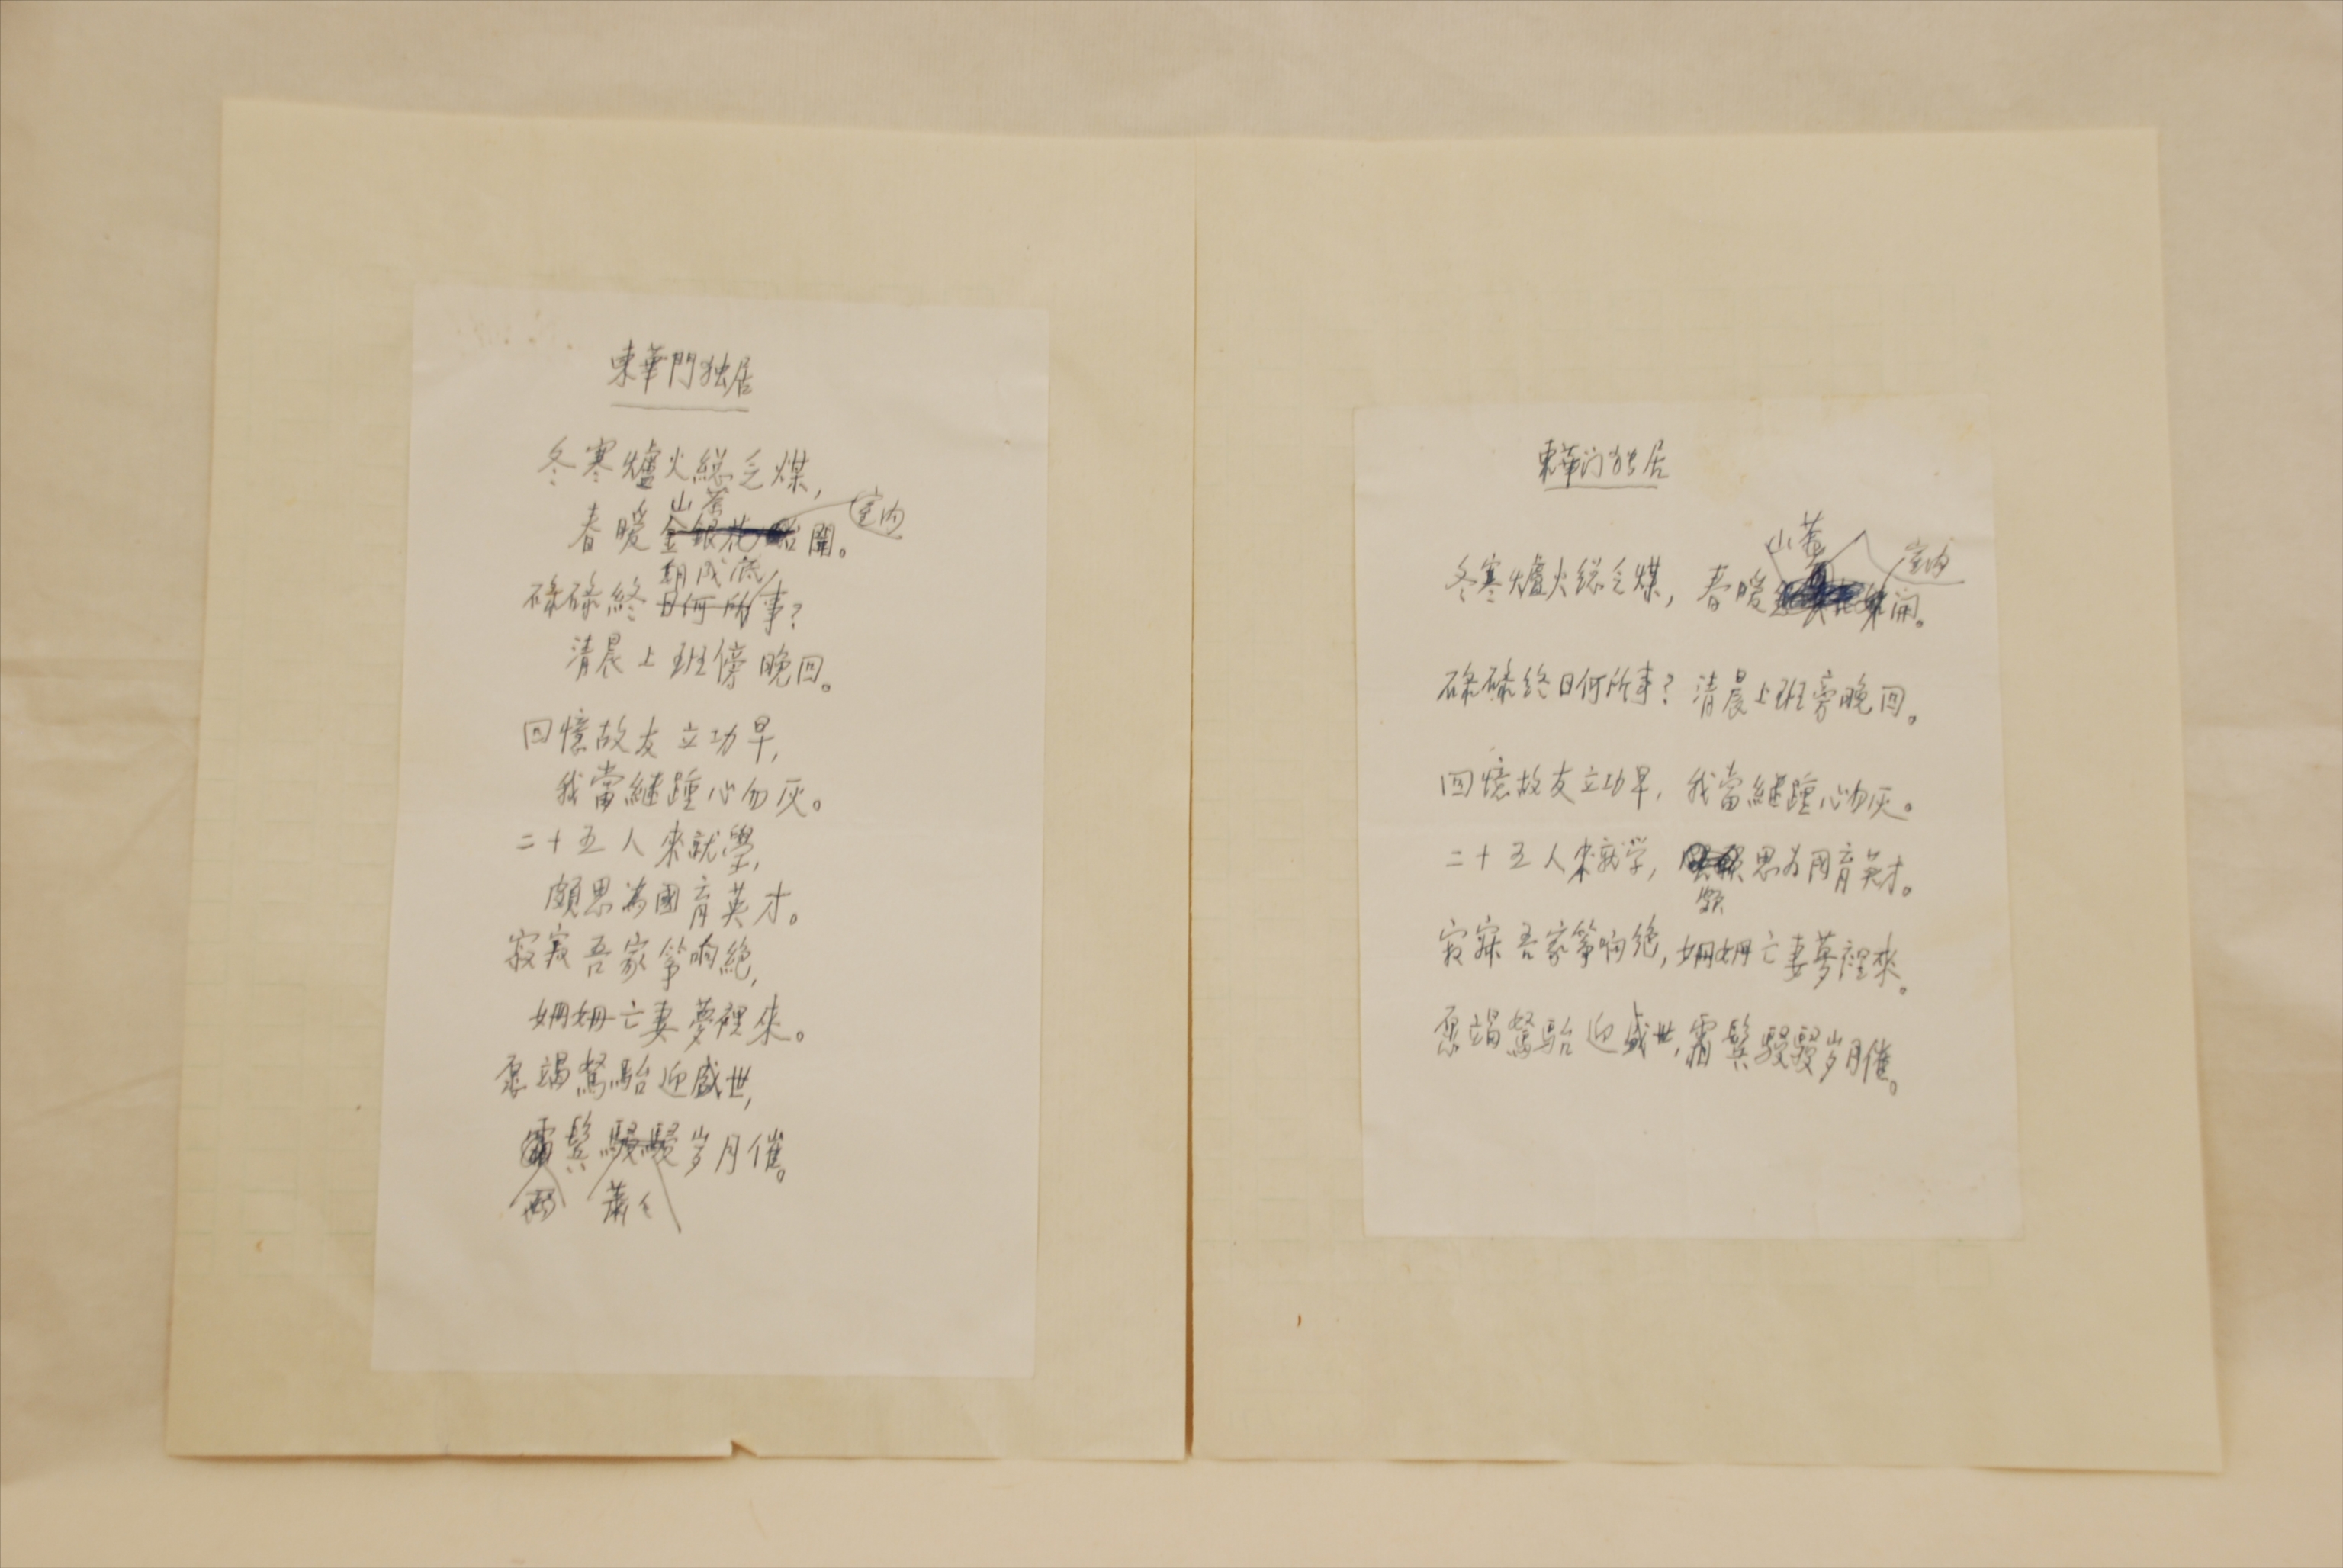 東華門独居
冬寒爐火総乏煤，
山茶
室内
春暖金銀花始開。
朝成底
碌碌終日何所事？
清晨上班傍晚回。
回憶故友立功早，
我當継踵心勿灰。
二十五人來就學，
頗思為國育英才。
寂寂吾家箏响絶，
姗姗亡妻夢裡來。
愿竭駑駘迎盛世，
霜鬂駸駸岁月催。
兩 蕭々
東華门独居
山茶
室内
冬寒爐火総乏煤，春暖開。
碌碌終日何所事？清晨上班旁晚回。
回憶故友立功早，我當継踵心勿灰。
二十五人來就学，思为国育英才。
頗
寂寂吾家箏响绝，姗姗亡妻夢裡來。
愿竭駑駘迎盛世，霜鬂駸駸岁月催。